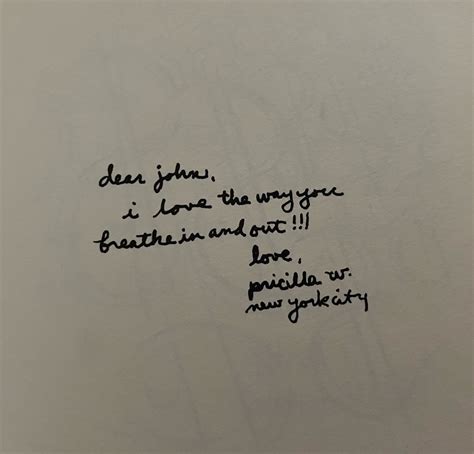 dear john,
i love the way you
breathe in and out!!!
love,
pricilla w.
new york city